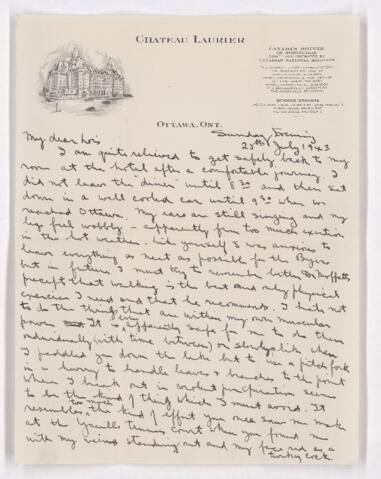 CHATEAU LAURIER
CANADA'S HOTELS
OF DISTINCTION
CANADIAN NATIONAL RAILWAYS
OTTAWA, ONT.
Sunday Evening
July 1943
My dear Lois
I am quite relieved to get safely back to my
room at the hotel after a comfortable journey. I
did not leave the diner until 8 30 and then sat
down in a well cooled car until 9 30 when we
reached Ottawa. My ears are still singing and my
legs feel wobbly – apparently from too much exertion
in the hot weather. Like yourself I was anxious to
leave everything as neat as possible for the
but in future I must try to remember better Dr Moffatt's
precept that walking is the best and only physical
exercise I need and that he recommends. I hate not
to do the things that are within my own muscular
power. It is apparently safe for me to do them
individually (with time between) or slowly like when
I paddled you down the lake but to use a pitch fork
in a hurry to handle leaves & branches to the point
where I break out in violent perspiration seems
to be the kind of thing which I must avoid. It
resembles too much the kind of effort you once saw me make
at the tennis court when you found me
with my veins standing out and my face red as a
turkey cock.